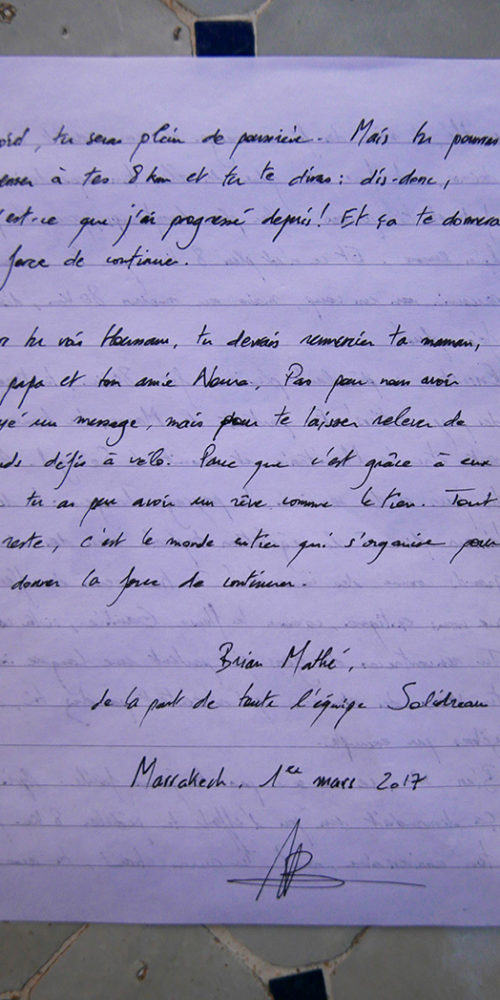 tu seras plein de poussière. Mais tu pourras
à tes 8 km et tu te diras : dis-donc,
est-ce que j'ai progressé depuis ! Et ça te donnera
force de continuer.
tu vois Houssam, tu devais remercier ta maman,
papa et ton amie Noura. Pas pour nous avoir
un message, mais pour te laisser relever de
défis à vélo. Parce que c'est grâce à eux
tu as pu avoir un rêve comme le tien. Tout
reste, c'est le monde entier qui s'organise pour
donner la force de continuer.
Brian Mathé,
de la part de toute l'équipe Solidreau
Marrakech, 1er mars 2017